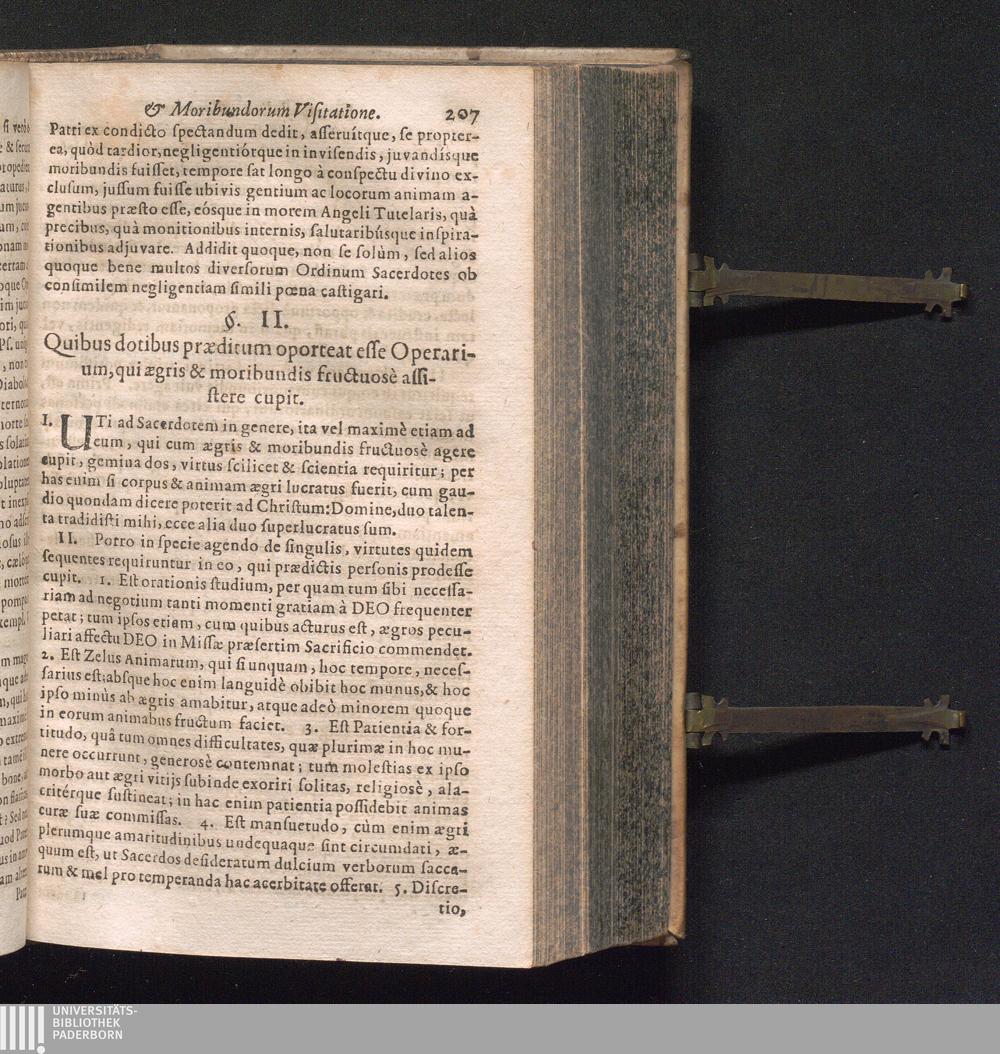 & Moribundorum Viſitatione. 207
Patri ex condicto ſpectandum dedit, aſſeruítque, ſe propter-
ea, quòd tardior, negligentiórque in inviſendis, juvandíſque
moribundis fuiſſet, tempore ſat longo à conſpectu divino ex-
cluſum, juſſum fuiſſe ubivis gentium ac locorum animam a-
gentibus præſto eſſe, eóſque in morem Angeli Tutelaris, quà
precibus, quà monitionibus internis, ſalutaribúſque inſpira-
tionibus adjuvare. Addidit quoque, non ſe ſolùm, ſed alios
quoque bene multos diverſorum Ordinum Sacerdotes ob
conſimilem negligentiam ſimili pœna caſtigari.
§. II.
Quibus dotibus præditum oporteat eſſe Operari-
um, qui ægris & moribundis fructuosè aſſi-
ſtere cupit.
I. UTi ad Sacerdotem in genere, ita vel maximè etiam ad
eum, qui cum ægris & moribundis fructuosè agere
cupit, gemina dos, virtus ſcilicet & ſcientia requiritur; per
has enim ſi corpus & animam ægri lucratus fuerit, cum gau-
dio quondam dicere poterit ad Chriſtum: Domine, duo talen-
ta tradidiſti mihi, ecce alia duo ſuperlucratus ſum.
II. Porro in ſpecie agendo de ſingulis, virtutes quidem
ſequentes requiruntur in eo, qui prædictis perſonis prodeſſe
cupit. 1. Eſt orationis ſtudium, per quam tum ſibi neceſſa-
riam ad negotium tanti momenti gratiam à DEO frequenter
petat; tum ipſos etiam, cum quibus acturus eſt, ægros pecu-
liari affectu DEO in Miſſæ præſertim Sacrificio commendet.
2. Eſt Zelus Animarum, qui ſi unquam, hoc tempore, neceſ-
ſarius eſt; abſque hoc enim languidè obibit hoc munus, & hoc
ipſo minùs ab ægris amabitur, atque adeò minorem quoque
in eorum animabus fructum faciet. 3. Eſt Patientia & for-
titudo, quâ tum omnes difficultates, quæ plurimæ in hoc mu-
nere occurrunt, generosè contemnat; tum moleſtias ex ipſo
morbo aut ægri vitijs ſubinde exoriri ſolitas, religiosè, ala-
critérque ſuſtineat; in hac enim patientia poſſidebit animas
curæ ſuæ commiſſas. 4. Eſt manſuetudo, cùm enim ægri
plerumque amaritudinibus undequaque ſint circumdati, æ-
quum eſt, ut Sacerdos deſideratum dulcium verborum ſacca-
rum & mel pro temperanda hac acerbitate offerat. 5. Diſcre-
tio,
UNIVERSITÄTS-
BIBLIOTHEK
PADERBORN